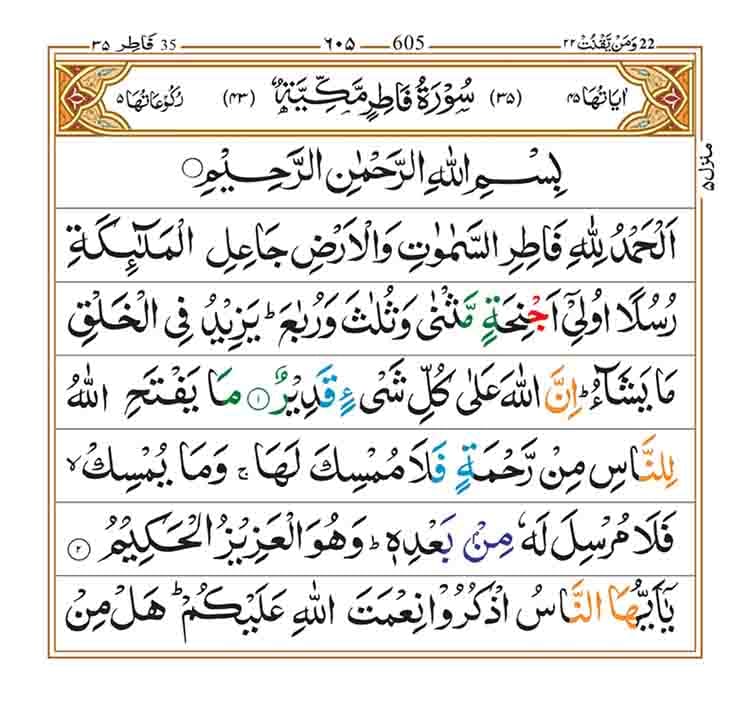 22 وَمَنْ يَّقْنُتْ ٢٢ 605 ٦٠٥ 35 فَاطِر ٣٥
اٰيَاتُهَا ٤٥ (٣٥) سُوْرَةُ فَاطِرٍ مَّكِّيَّةٌ (٤٣) رُكُوْعَاتُهَا ٥
منزل ٥
بِسْمِ اللّٰهِ الرَّحْمٰنِ الرَّحِيْمِ
اَلْحَمْدُ لِلّٰهِ فَاطِرِ السَّمٰوٰتِ وَالْاَرْضِ جَاعِلِ الْمَلٰٓئِكَةِ
رُسُلًا اُولِيْٓ اَجْنِحَةٍ مَّثْنٰى وَثُلٰثَ وَرُبٰعَ ؕ يَزِيْدُ فِى الْخَلْقِ
مَا يَشَآءُ ؕ اِنَّ اللّٰهَ عَلٰى كُلِّ شَىْءٍ قَدِيْرٌ ١ مَا يَفْتَحِ اللّٰهُ
لِلنَّاسِ مِنْ رَّحْمَةٍ فَلَا مُمْسِكَ لَهَا ۚ وَمَا يُمْسِكْ ۙ
فَلَا مُرْسِلَ لَهٗ مِنْۢ بَعْدِهٖ ؕ وَهُوَ الْعَزِيْزُ الْحَكِيْمُ ٢
يٰٓاَيُّهَا النَّاسُ اذْكُرُوْا نِعْمَتَ اللّٰهِ عَلَيْكُمْ ؕ هَلْ مِنْ